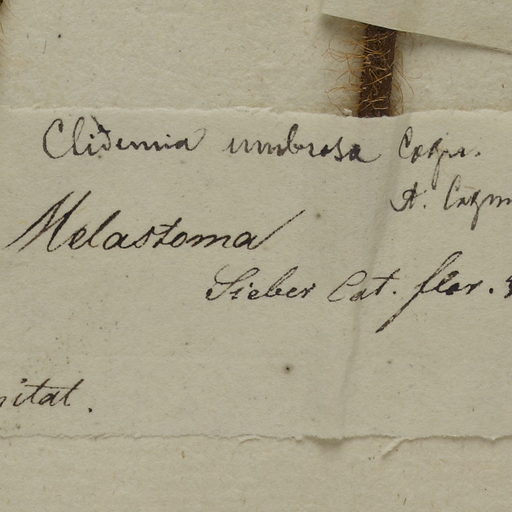 Clidemia umbrosa Cogn.
A. Cogn
Melastoma
Sieber Cat. flor.
itat.